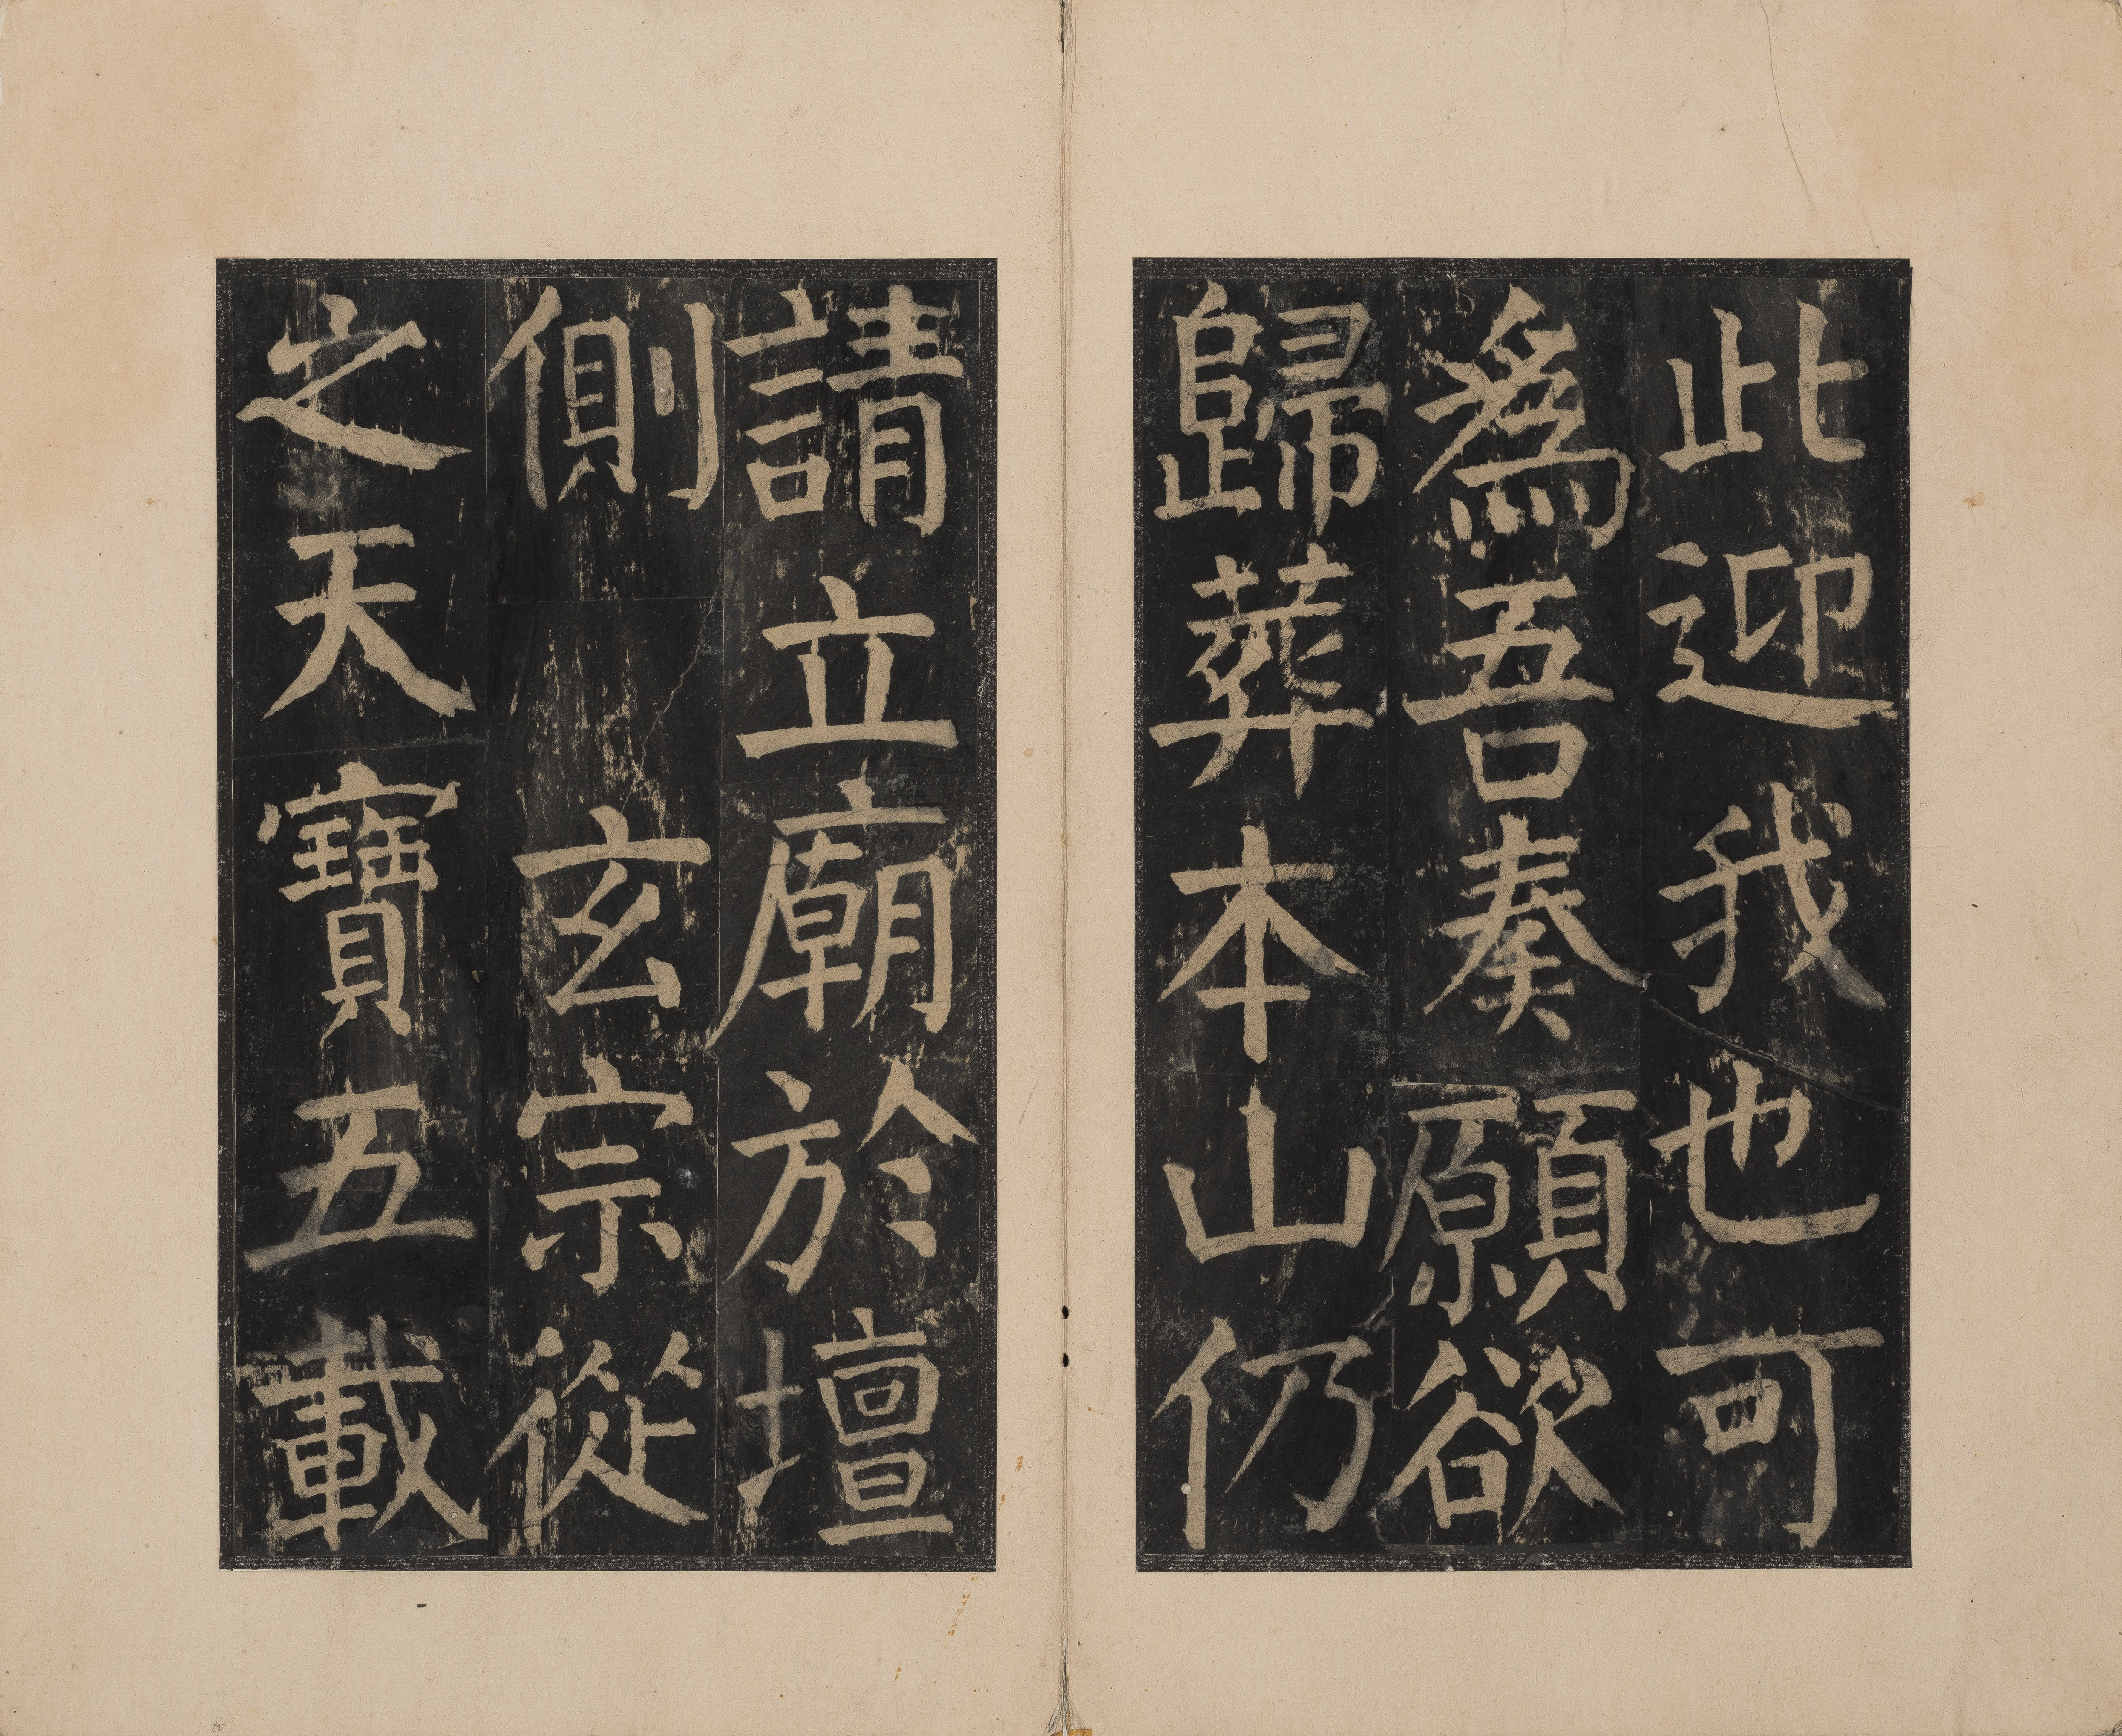 此迎我也可
為吾奏願欲
歸葬本山仍
請立廟於壇
側玄宗從
之天寶五載